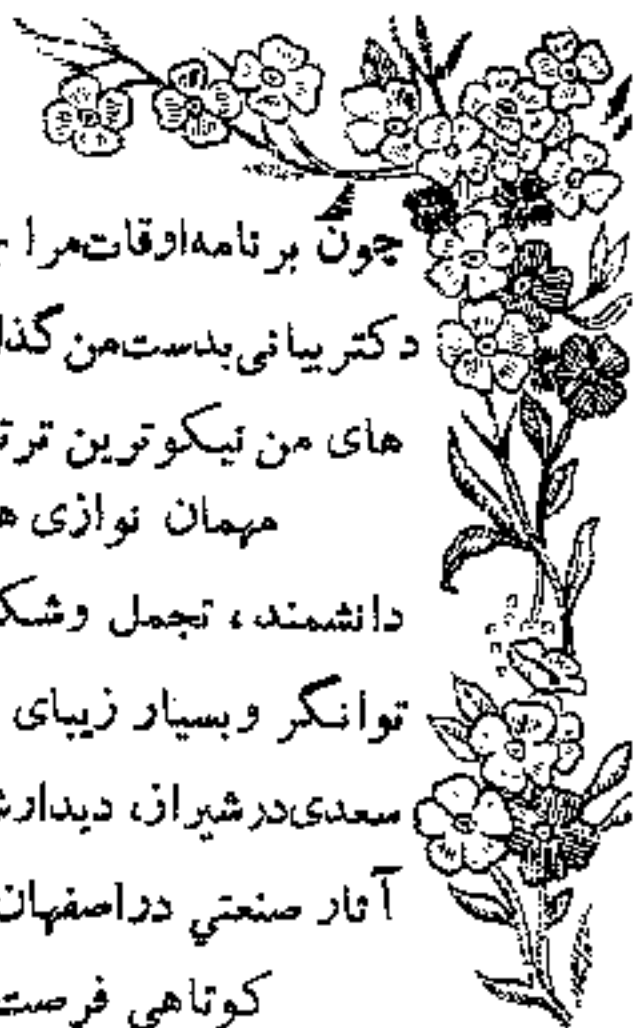 چون برنامه‌اوقات‌مرا
دکتربیانی‌بدست‌من
های من نیکوترین
مهمان نوازی
دانشمند، تجمل
توانگر وبسیار زیبای
سعدی‌درشیراز،
آثار صنعتي دراصفهان
کوتاهی فرصت